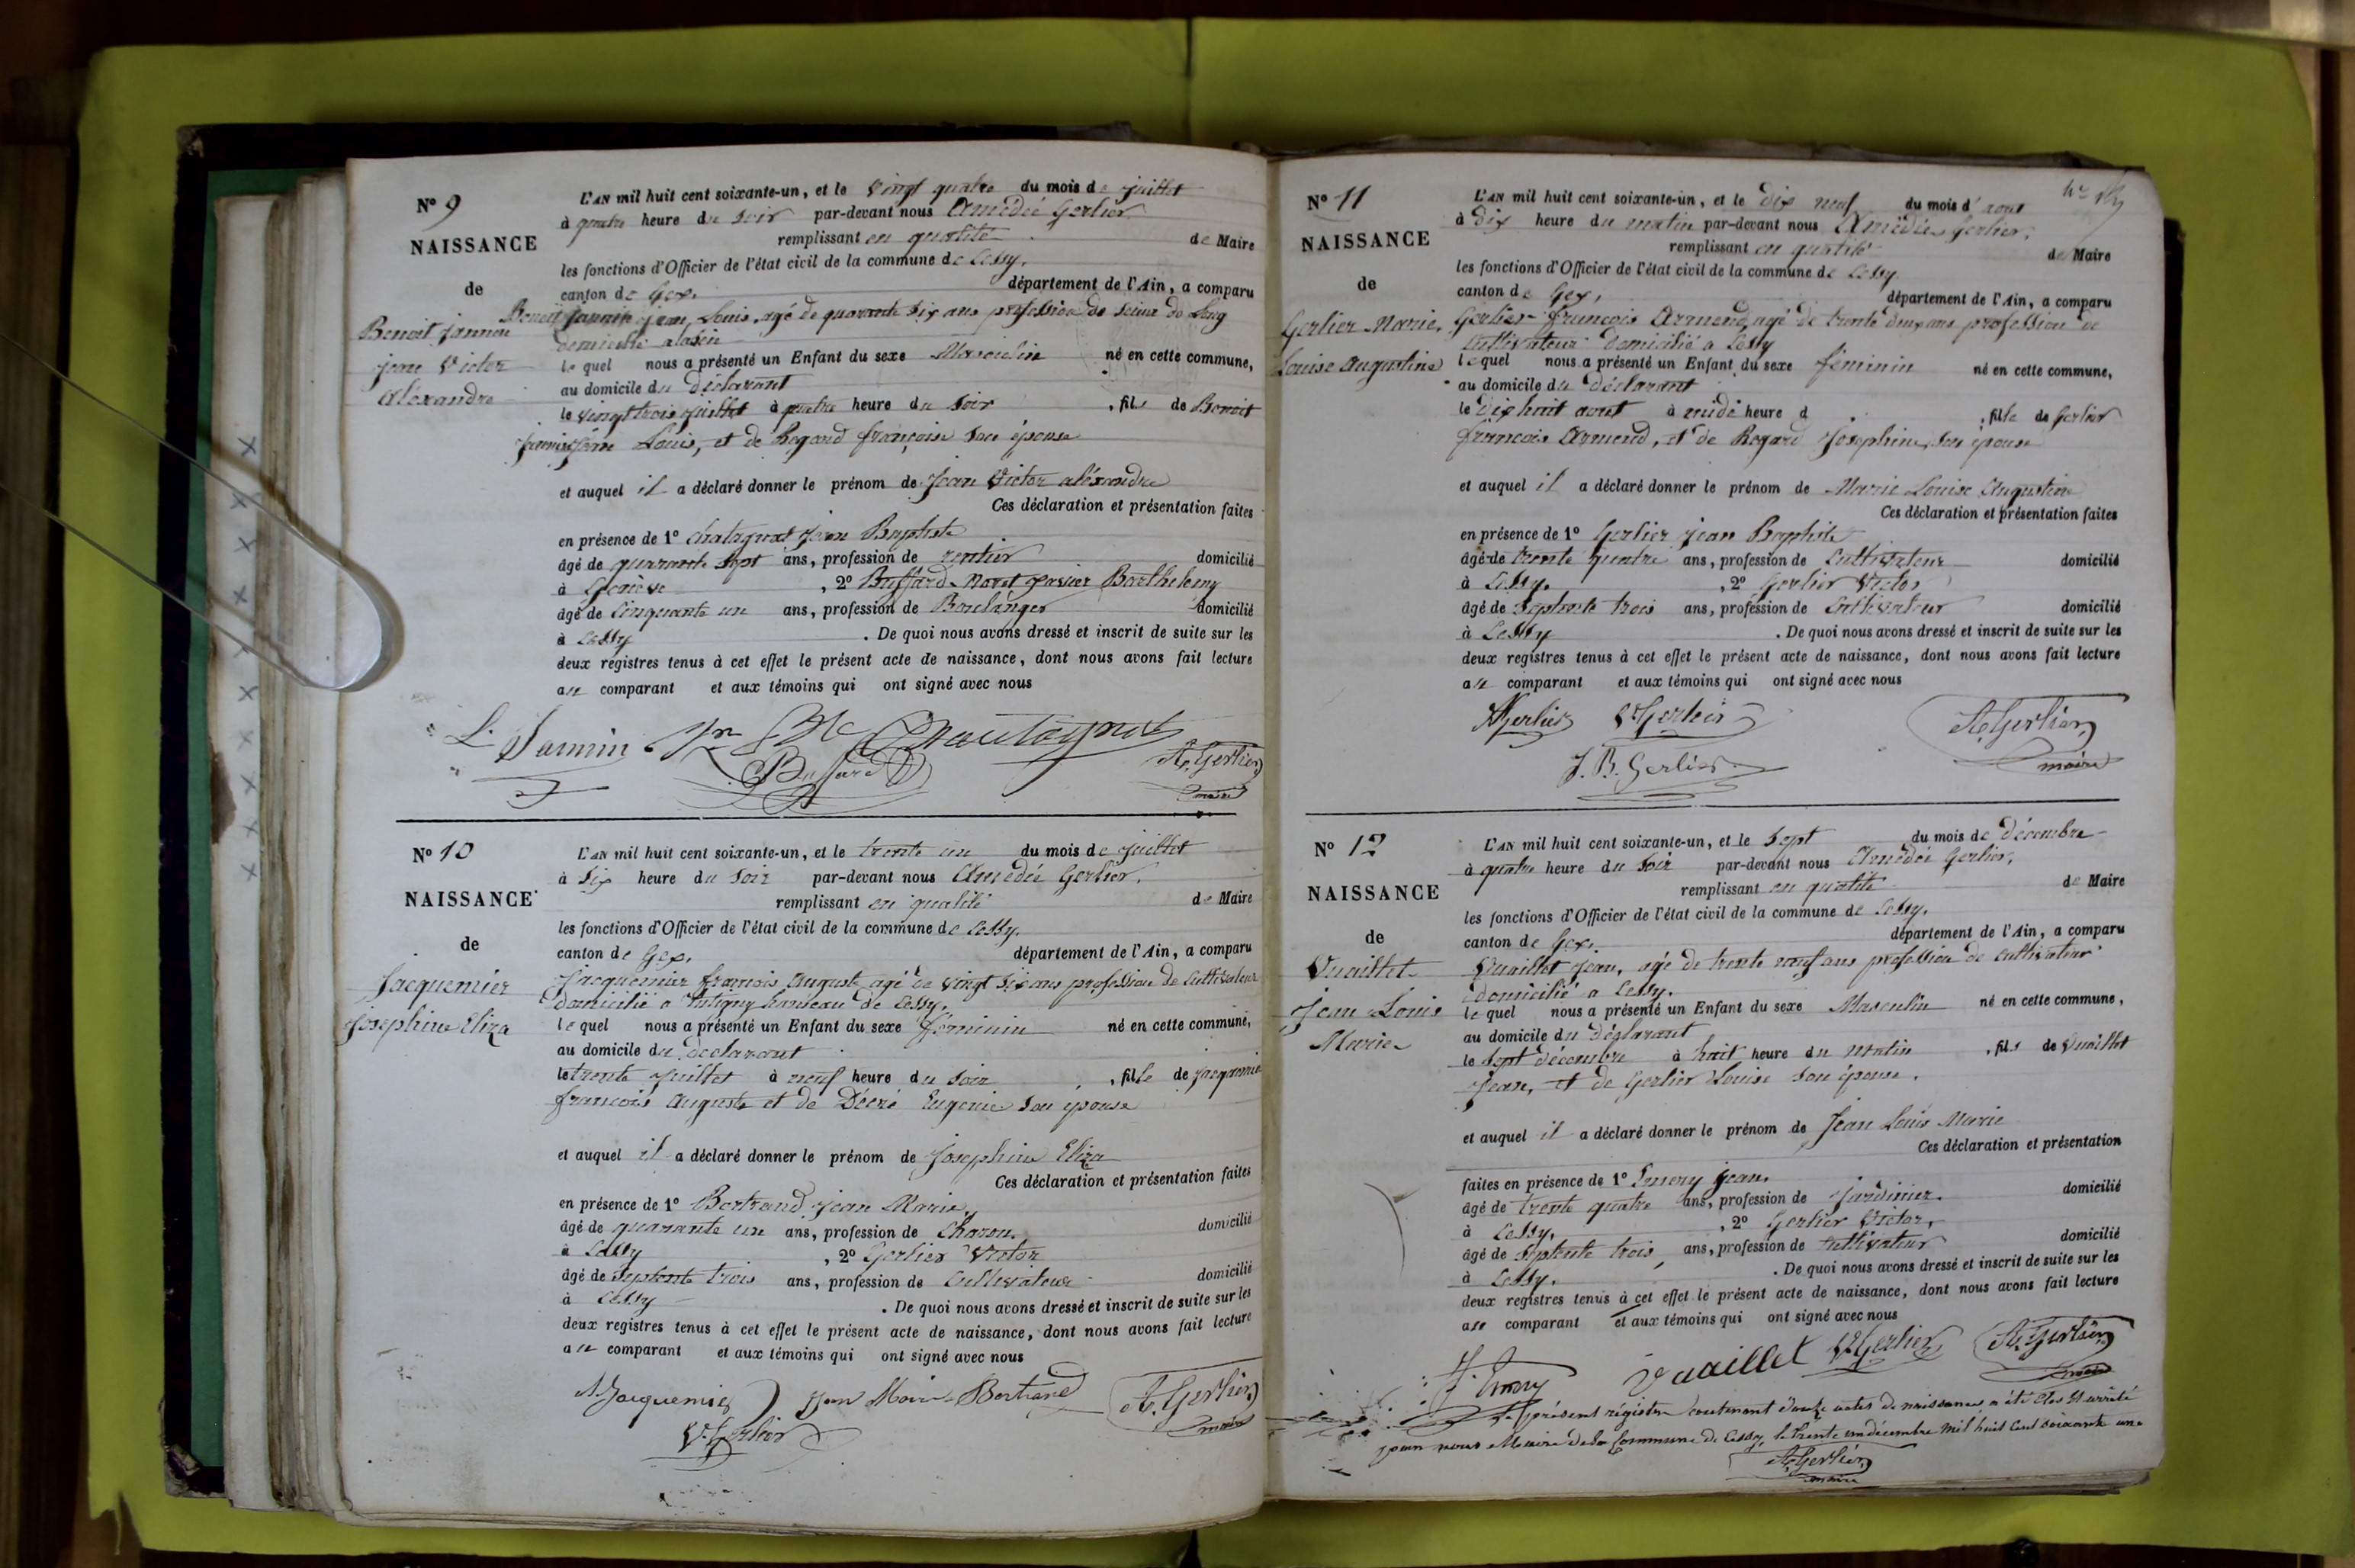 N° 9
NAISSANCE
de
Benoit jannin
jean Victor
aléxandre
L'AN mil huit cent soixante-un, et le vingt quatre du mois de juillet
à quatre heure du soir par-devant nous Amédée Gerlier
remplissant en qualité de Maire
les fonctions d'Officier de l'état civil de la commune de Cessy.
canton de Gex. département de l'Ain, a comparu
Benoit jannin jean Louis, agé de quarante six ans profession de scieur de long
domicilié
le quel nous a présenté un Enfant du sexe Masculin né en cette commune,
au domicile du déclarant
le vingt trois juillet à quatre heure du soir , fils de Benoit
jannin jean Louis, et de Regard françoise son épouse
et auquel il a déclaré donner le prénom de Jean Victor aléxandre
Ces déclaration et présentation faites
en présence de 1° jean Baptiste
âgé de quarante sept ans, profession de rentier domicilié
à Genève , 2° Buffard Barthelemy
âgé de Cinquante un ans, profession de Boulanger domicilié
à Cessy . De quoi nous avons dressé et inscrit de suite sur les
deux registres tenus à cet effet le présent acte de naissance, dont nous avons fait lecture
au comparant et aux témoins qui ont signé avec nous
L. Jannin
Buffard
A. Gerlier
maire
N° 10
NAISSANCE
de
Jacquemier
Josephine Eliza
L'AN mil huit cent soixante-un, et le trente un du mois de juillet
à six heure du soir par-devant nous Amédée Gerlier.
remplissant en qualité de Maire
les fonctions d'Officier de l'état civil de la commune de Cessy.
canton de Gex. département de l'Ain, a comparu
Jacquemier françois Auguste agé de vingt six ans profession de Cultivateur
domicilié a hameau de Cessy.
le quel nous a présenté un Enfant du sexe féminin né en cette commune,
au domicile du declarant
le trente juillet à neuf heure du soir , fille de jacquemier
françois Auguste et de Décré Eugenie son epouse
et auquel il a déclaré donner le prénom de Josephine Eliza
Ces déclaration et présentation faites
en présence de 1° Bertrand jean Marie,
âgé de quarante un ans, profession de Charon. domicilié
à Cessy , 2° Gerlier Victor
âgé de septente trois ans, profession de Cultivateur domicilié
à Cessy . De quoi nous avons dressé et inscrit de suite sur les
deux registres tenus à cet effet le présent acte de naissance, dont nous avons fait lecture
au comparant et aux témoins qui ont signé avec nous
A. Jacquemier Jean Marie Bertrand A. Gerlier
maire
V. Gerlier
N° 11
NAISSANCE
de
Gerlier Marie,
Louise Augustine
L'AN mil huit cent soixante-un, et le dix neuf du mois d' aout
à dix heure du matin par-devant nous Amédée Gerlier.
remplissant en qualité de Maire
les fonctions d'Officier de l'état civil de la commune de Cessy
canton de Gex, département de l'Ain, a comparu
Gerlier françois Armend, agé de trente deux ans profession de
Cultivateur domicilié a Cessy
le quel nous a présenté un Enfant du sexe féminin né en cette commune,
au domicile du déclarant
le dix huit aout à midi heure d , fille de Gerlier
françois Armend, et de Regard Josephine, son épouse
et auquel il a déclaré donner le prénom de Marie Louise Augustine
Ces déclaration et présentation faites
en présence de 1° Gerlier jean Baptiste
âgé de trente quatre ans, profession de Cultivateur domicilié
à Cessy. , 2° Gerlier Victor
âgé de septente trois ans, profession de Cultivateur domicilié
à Cessy . De quoi nous avons dressé et inscrit de suite sur les
deux registres tenus à cet effet le présent acte de naissance, dont nous avons fait lecture
au comparant et aux témoins qui ont signé avec nous
AGerlier V. Gerlier A. Gerlier
maire
J. B. Gerlier
N° 12
NAISSANCE
de
Vuaillet
Jean Louis
Marie
L'AN mil huit cent soixante-un, et le sept du mois de décembre
à quatre heure du soir par-devant nous Amédée Gerlier,
remplissant en qualité de Maire
les fonctions d'Officier de l'état civil de la commune de Cessy.
canton de Gex. département de l'Ain, a comparu
Vuaillet jean, agé de trente neuf ans profession de cultivateur
domicilié a Cessy.
le quel nous a présenté un Enfant du sexe Masculin né en cette commune,
au domicile du déclarant
le sept décembre à huit heure du matin , fils de Vuaillet
Jean, et de Gerlier Louise son épouse.
et auquel il a déclaré donner le prénom de Jean Louis Marie
Ces déclaration et présentation
faites en présence de 1° Emery jean.
âgé de trente quatre ans, profession de jardinier. domicilié
à Cessy. , 2° Gerlier Victor,
âgé de septente trois ans, profession de cultivateur domicilié
à Cessy. . De quoi nous avons dressé et inscrit de suite sur les
deux registres tenus à cet effet le présent acte de naissance, dont nous avons fait lecture
au comparant et aux témoins qui ont signé avec nous
J. Emery Vuaillet V. Gerlier A. Gerlier
maire
Le présent régistre contenant douze actes de naissances a été clos et arrêté
par nous Maire de la Commune de Cessy, le trente un décembre mil huit cent soixante une
A. Gerlier
maire